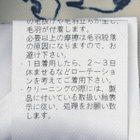 の毛抜けや毛羽立ちが生じ、
毛羽が付着します。
必要以上の摩擦は毛羽脱落
の原因になりますので、お
避け下さい。
1日着用したら、2〜3日
休ませるなどローテーション
を考えてご着用下さい。
クリーニングの際には、製
品に付いている取扱い絵表
示に従い、処理をお願い致
します。